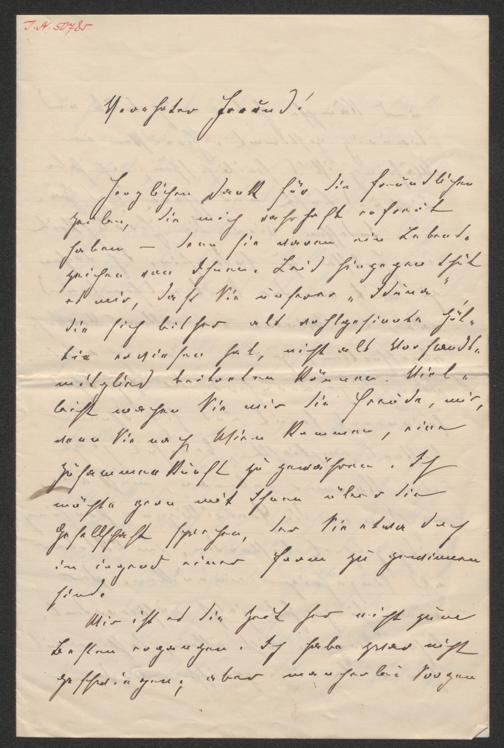 I.N. 50785
Verehrter Freund!
Herzlichen Dank für die freundlichen
Zeilen, die mich wahrhaft erfreut
haben – denn sie waren ein Lebens-
zeichen von Ihnen. Leid hingegen thut
es mir, daß Sie unserer „Iduna",
die sich bisher als wohlgesinnte Göt-
tin erwiesen hat, nicht als Vorstands-
mitglied beitreten können. Viel-
leicht machen Sie mir die Freude, mir,
wenn Sie nach Wien kommen, eine
Zusammenkunft zu gewähren. Ich
möchte gern mit Ihnen über die
Gesellschaft sprechen, der Sie etwa doch
in irgend einer Form zu gewinnen
sind.
Mir ist es die Zeit her nicht zum
Besten ergangen. Ich habe zwar nicht
geschwiegen; aber mancherlei Sorgen